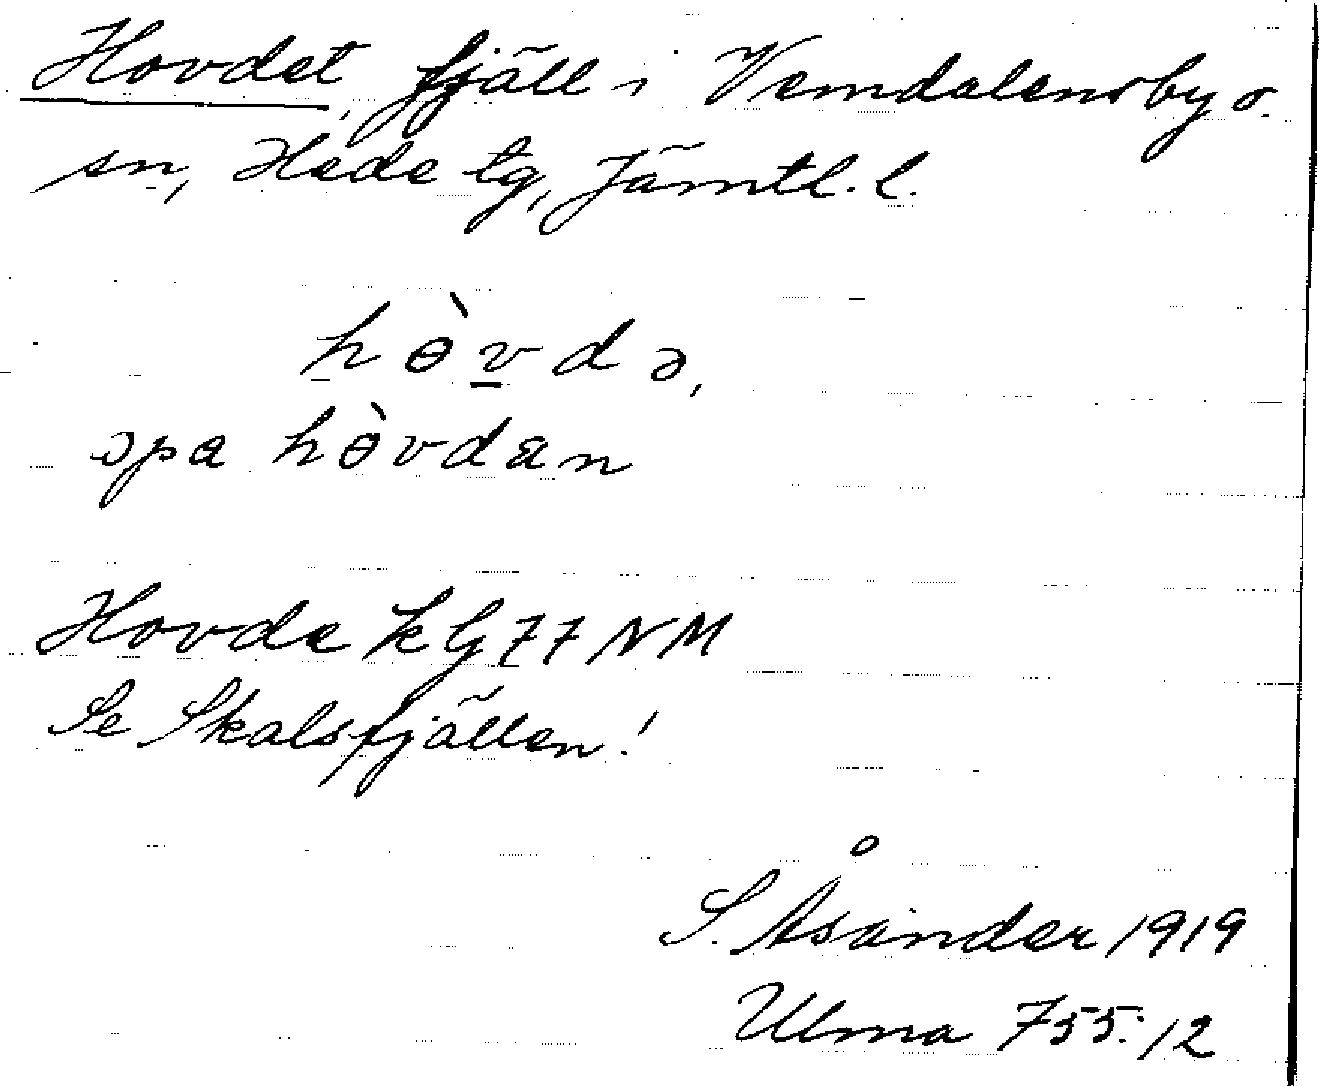 Hovdet, fjäll i Vemdalens by o.
sn, Hede tg, Jämtl. l.
hɵ̀vdə,
spa hɵ̀vdan
Hovde kG 77 NM
Se Skalsfjällen!
S. Åsander 1919
Ulma 755:12